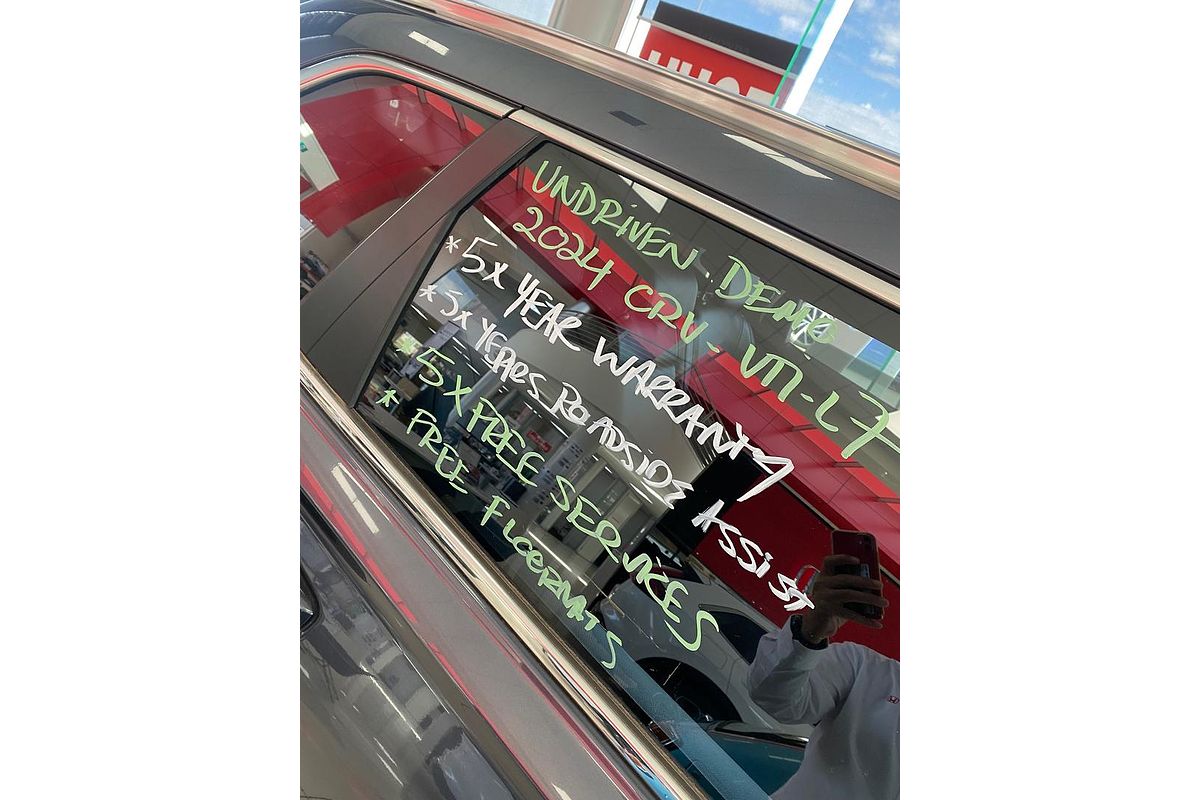 UNDRIVEN DEMO
2024 CRV - VTI-L7
* 5 X YEAR WARRANTY
* 5 X YEARS ROADSIDE ASSIST
* 5 X FREE SERVICES
* FREE FLOORMATS